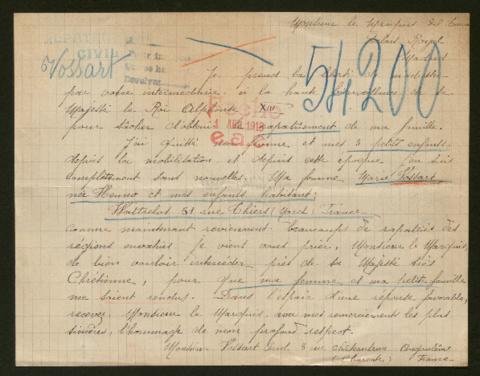 Monsieur le Marquis de
Palais Royal
CIVIL
Vossart
54200
Je prends la liberté de
par votre intermédiaire, à la haute bienveillance de sa
Majesté le Roi Alphonse XIII
pour tâcher d'obtenir rapatriement de ma famille.
AVR. 1918
J'ai quitté ma femme et mes 3 petits enfants
depuis la mobilisation et depuis cette époque j'en suis
complètement sans nouvelles. Ma femme Marie Vossart
née et mes enfants habitant:
Wattrelos 81 rue Thiers (Nord) France
comme maintenant reviennent beaucoup de rapatriés des
régions envahies je viens vous prier, Monsieur le Marquis,
de bien vouloir intercéder près de Sa Majesté très
Chrétienne, pour que ma femme et ma petite famille
me soient rendus. Dans l'espoir d'une réponse favorable,
recevez Monsieur le Marquis, avec mes remerciements les plus
sincères, l'hommage de mon profond respect.
Monsieur Vossart rue
(Charente) France